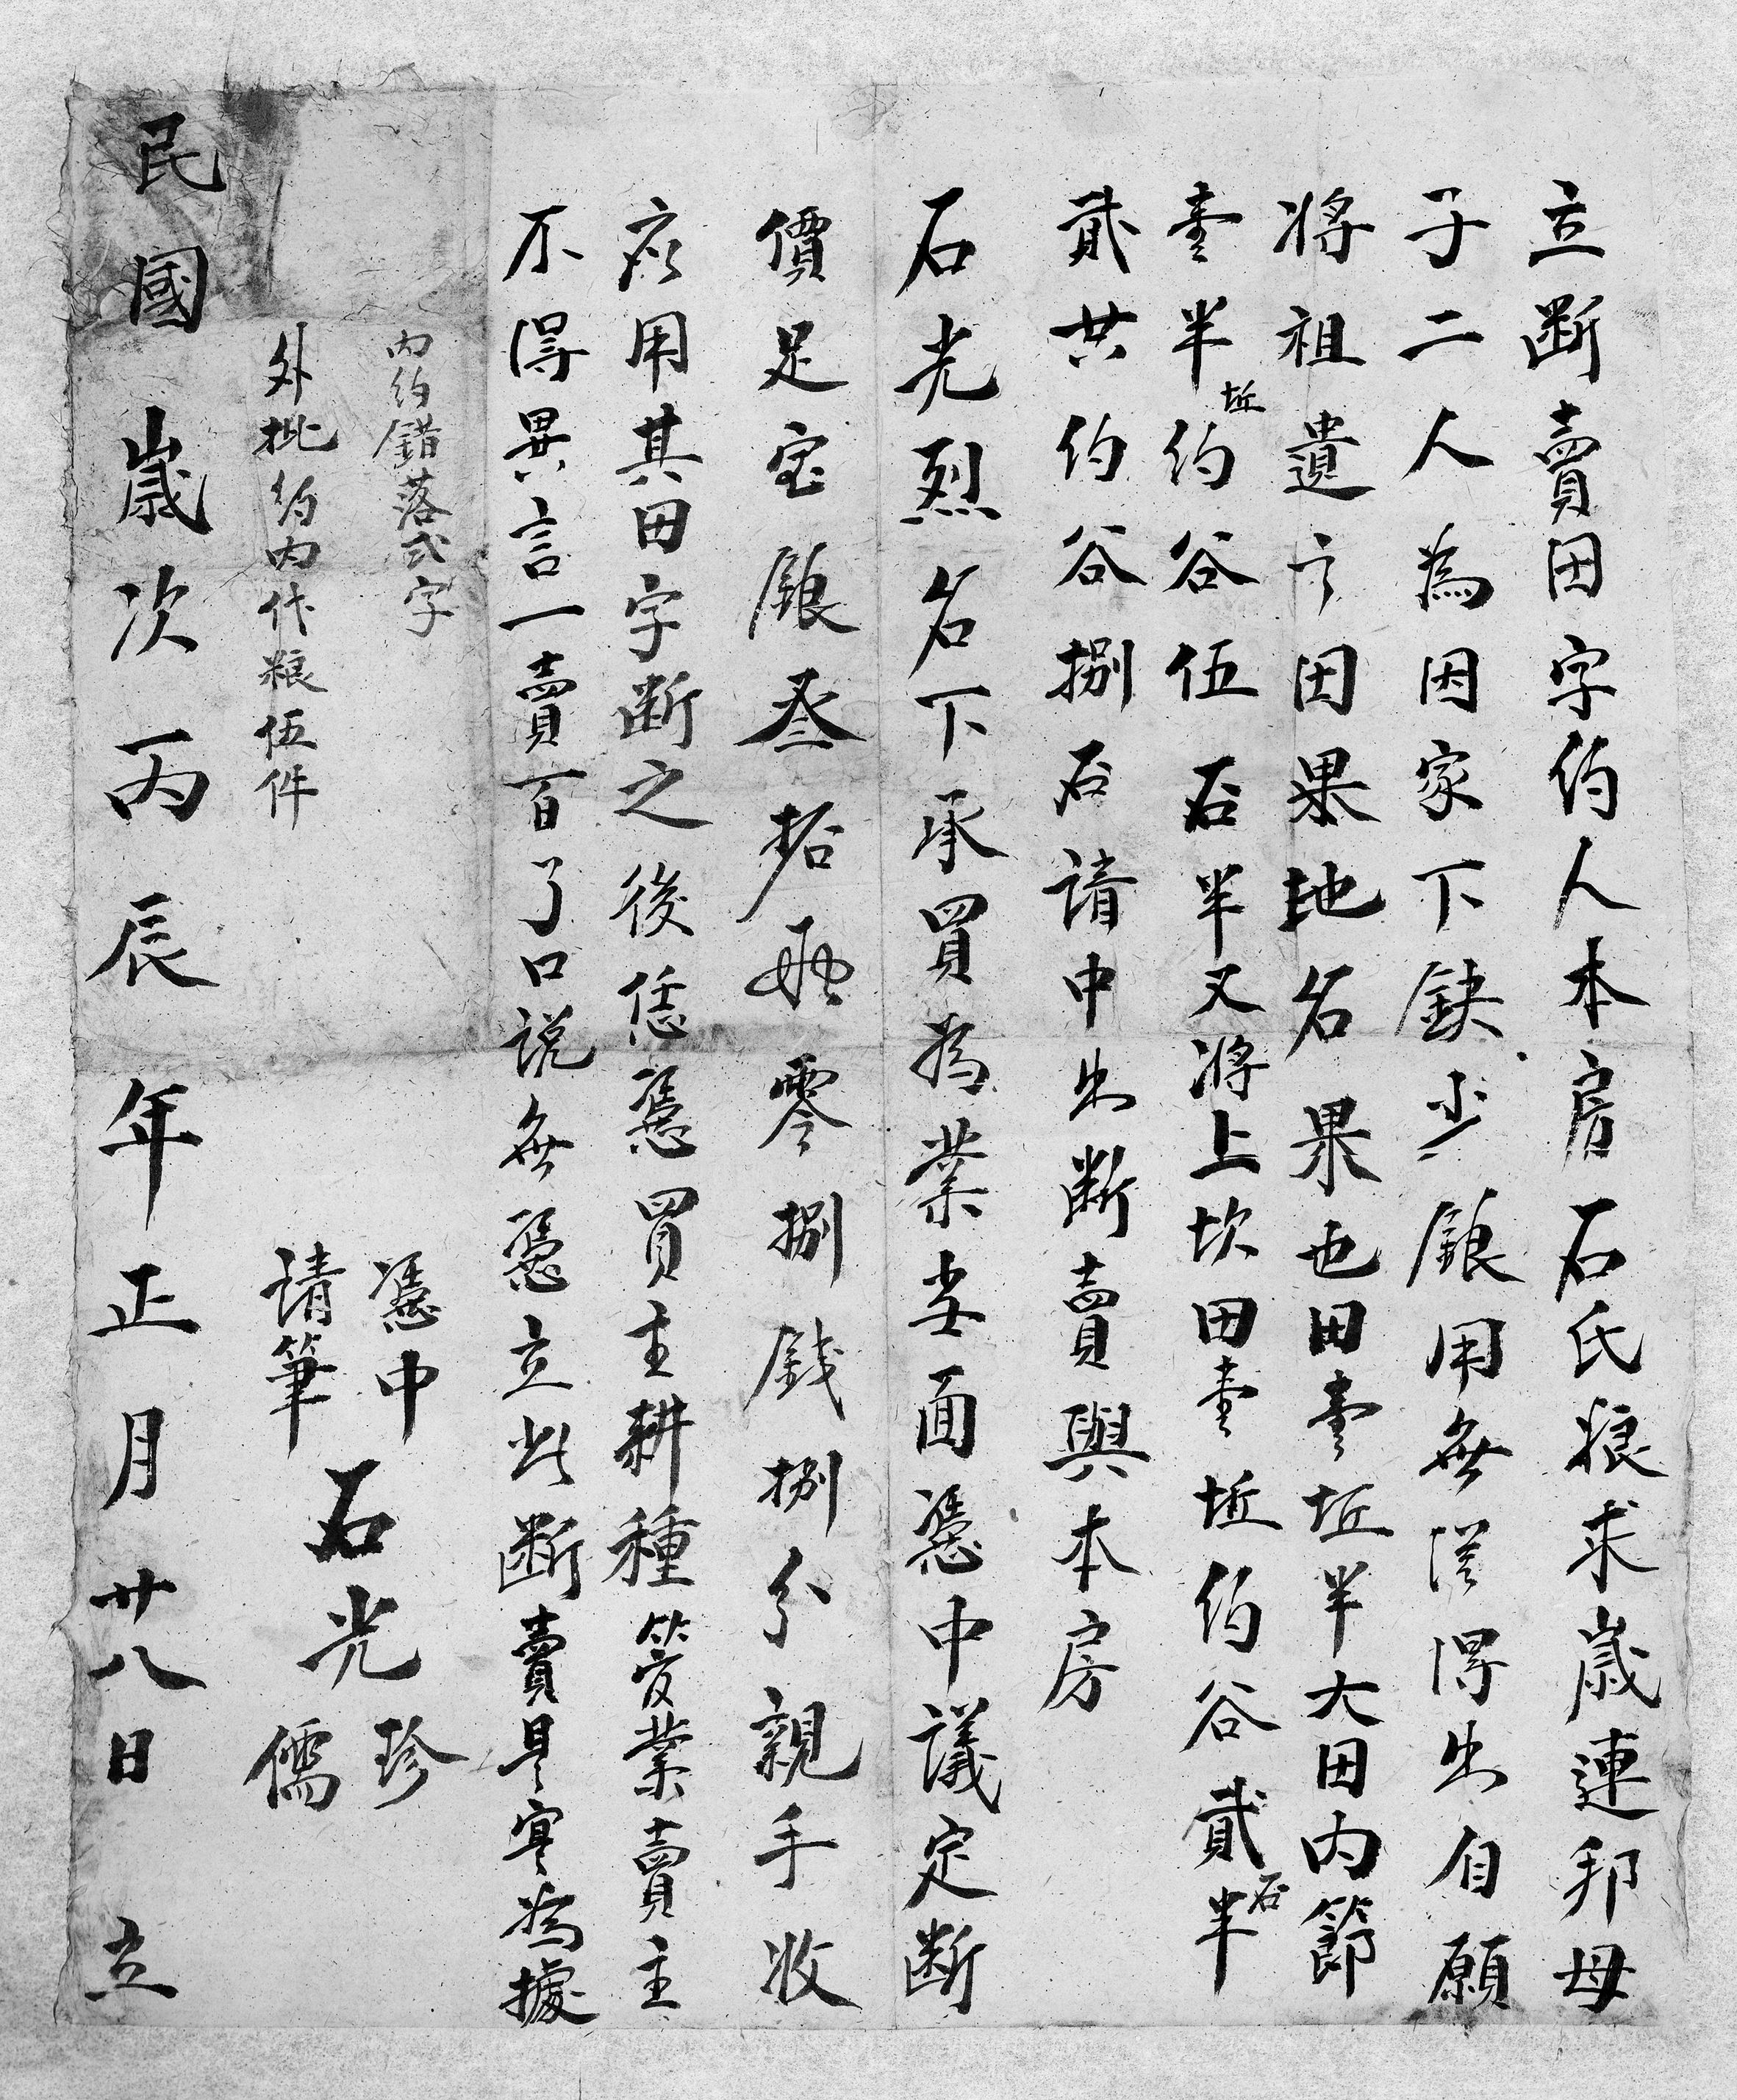 立斷賣田字約人本房石氏粮求歲連邦母
子二人為因家下缺少銀用無從得出自願
將祖遺之田果地名果也田壹坵半大田内節
壹半坵約谷伍石半又將上坎田壹坵約谷貳石半
貳共約谷捌石請中出斷賣與本房
石光烈名下承買為業当面憑中議定斷
價足色銀叁拾兩零捌錢捌分親手收
應用其田字斷之後恁憑買主耕種管業賣主
不得異言一賣百了口說無憑立此斷賣是實為據
内約錯落弍字
外批約内代粮伍件
憑中 石光珍
請筆 石光儒
民國歲次丙辰年正月廿八日 立